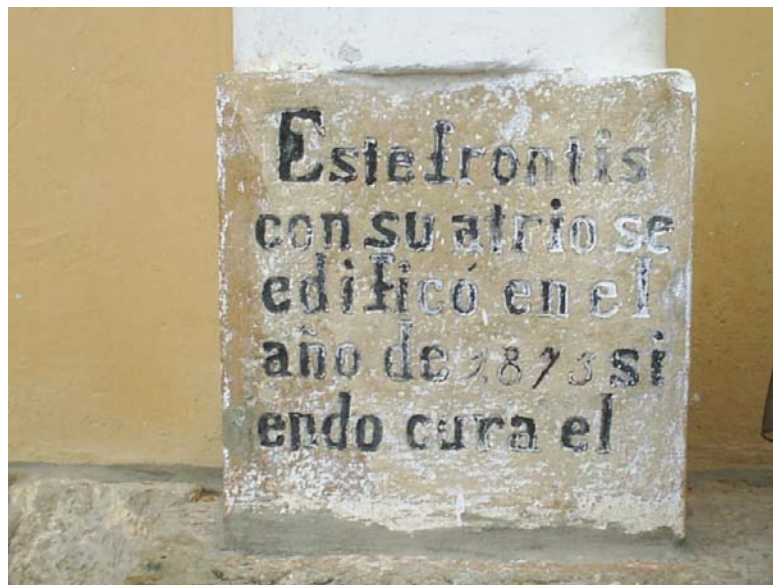 Este frontis
con su atrio se
edificó en el
año de 1873 si
endo cura el